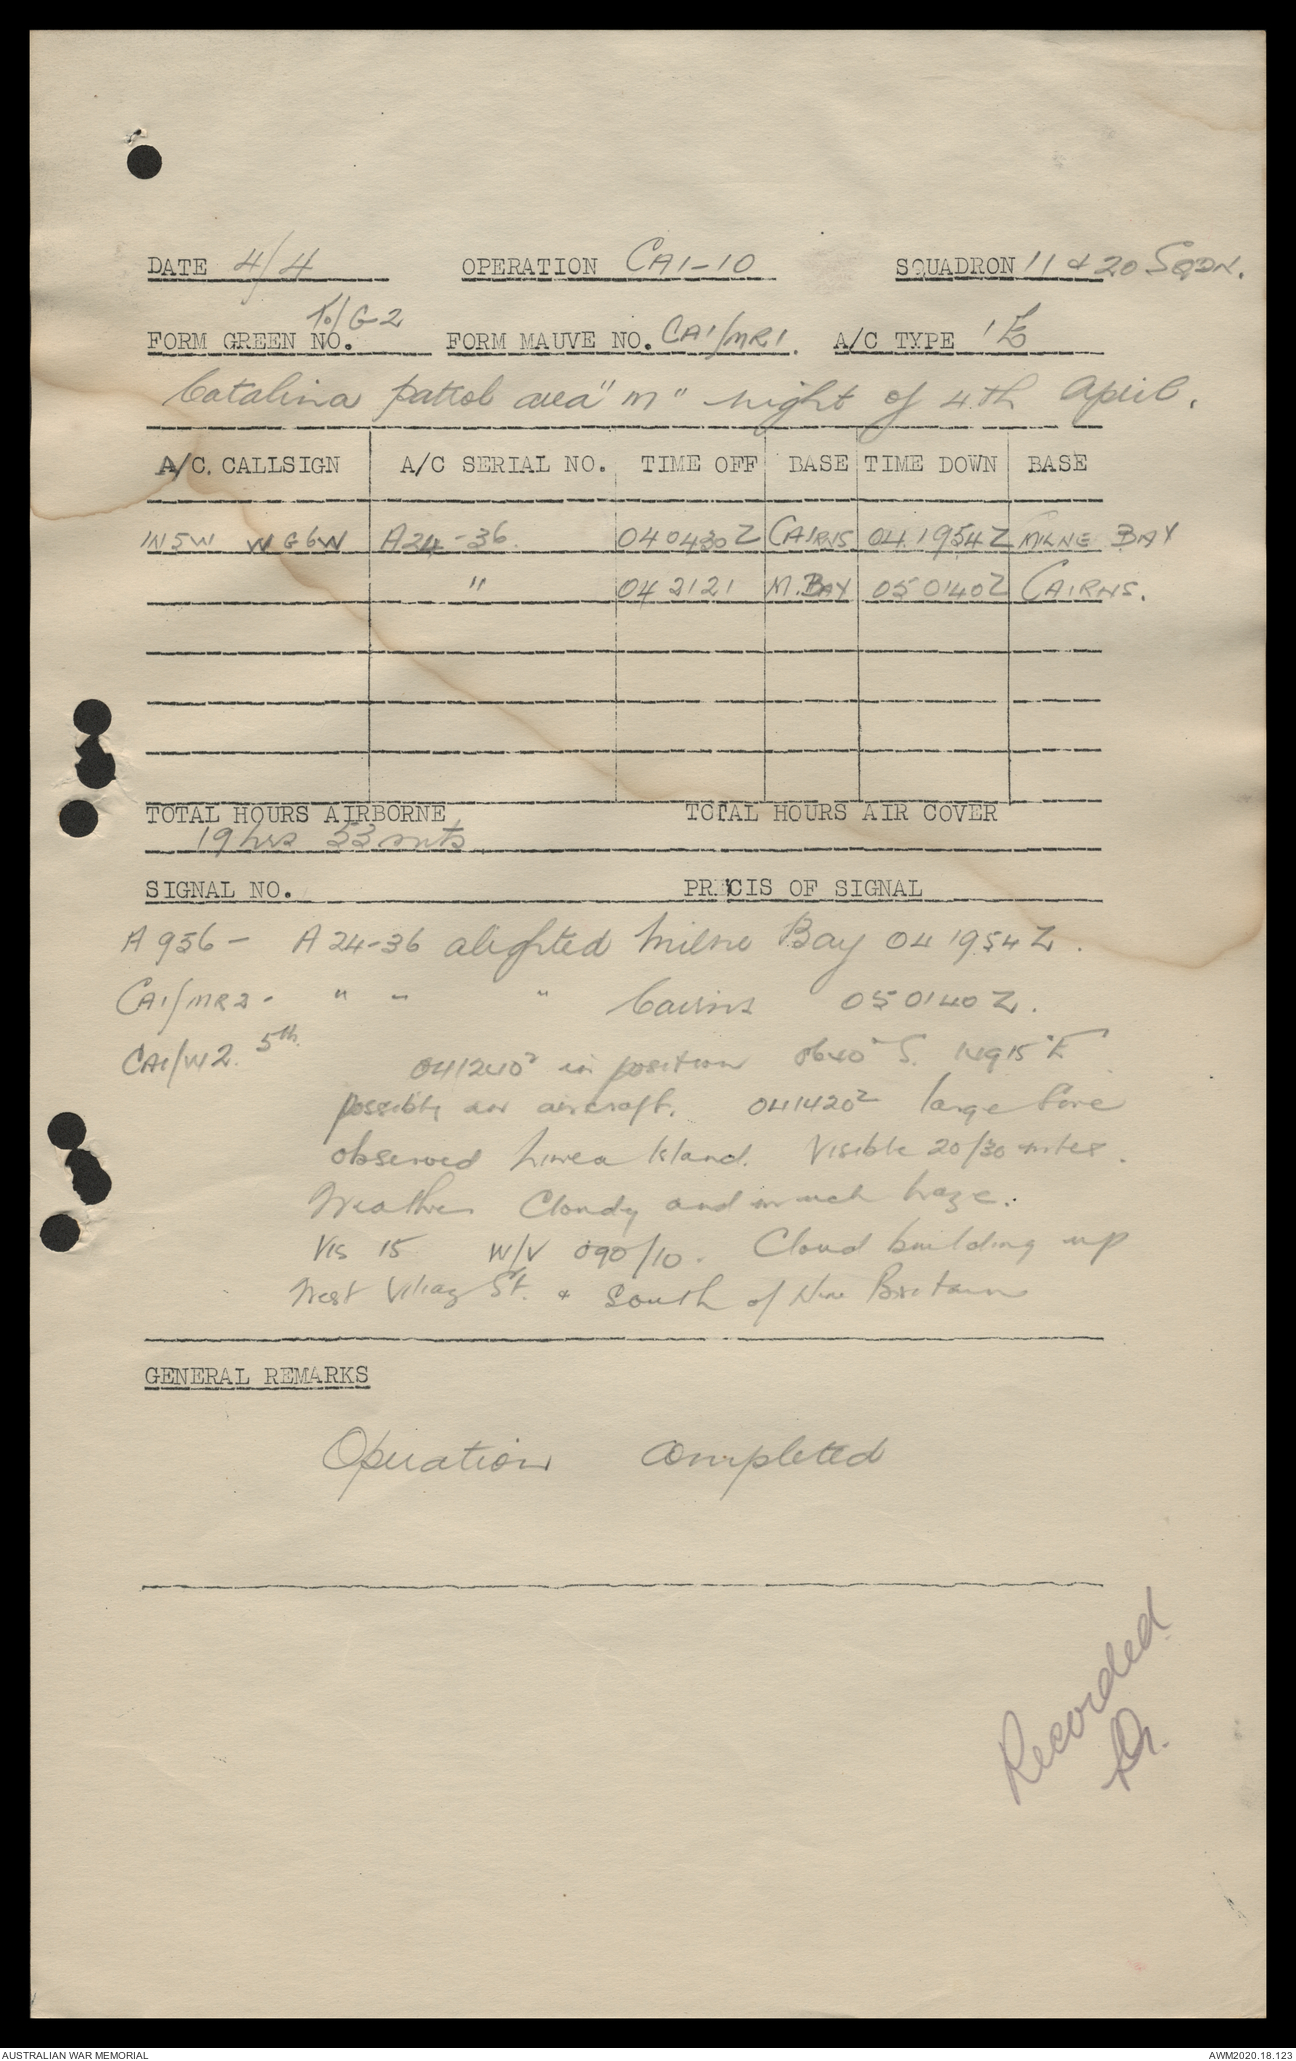 DATE 4/4 OPERATION CAI-10 SQUADRON 11 & 20 SQDN.
To/G2
FORM GREEN NO. FORM MAUVE NO. CAI/MR1. A/C TYPE
Catalina patrol area "M" night of 4th April.
A/C. CALLSIGN A/C SERIAL NO. TIME OFF BASE TIME DOWN BASE
1N5W WG6W A24-36. 040430Z CAIRNS 041954Z MILNE BAY
" 042121 M. BAY 050140Z CAIRNS.
TOTAL HOURS AIRBORNE TOTAL HOURS AIR COVER
19 hrs 53 mts
SIGNAL NO. PRECIS OF SIGNAL
A956 - A24-36 alighted Milne Bay 041954Z.
CAI/MR2 - " " " Cairns 050140Z.
CAI/W2. 5th. 041240Z in position 0640°S. 14915°E
possibly an aircraft. 041420Z large fire
observed Island. Visible 20/30 miles.
Weather Cloudy and much haze.
Vis 15 W/V 090/10. Cloud building up
West Vitiaz St. & South of New Britain
GENERAL REMARKS
Operation completed
Recorded.
AUSTRALIAN WAR MEMORIAL AWM2020.18.123